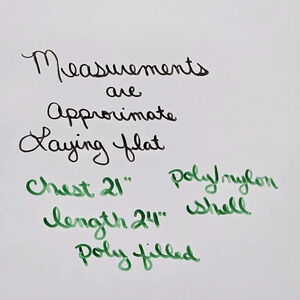 Measurements
are
Approximate
Laying flat
Chest 21"
length 24"
poly filled
poly/nylon
shell